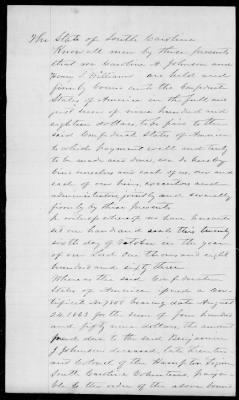 The State of South Carolina
Know all men by these presents
that we Caroline A Johnson and
Henry S Williams are held and
firmly bound unto the Confederate
States of America in the full and
just sum of nine hundred and
eighteen dollars to be paid to the
said Confederate States of America
to which payment well and truly
to be made and done, we do hereby
bind ourselves and each of us, our and
each of our heirs, executors and
administrators jointly and severally
firmly by these presents
In witness whereof we have hereunto
set our hands and seals this twenty
sixth day of October in the year
of our Lord One thousand and eight
hundred and sixty three
Whereas the said Confederate
States of America issued a cer
tificate No 7808 bearing date August
24, 1863 for the sum of four hundred
and fifty nine dollars, the amount
found due to the said Benjamin
J Johnson deceased, late Lieuten
ant Colonel of the Hampton Legion
South Carolina Volunteers, paya
ble to the order of the above bound